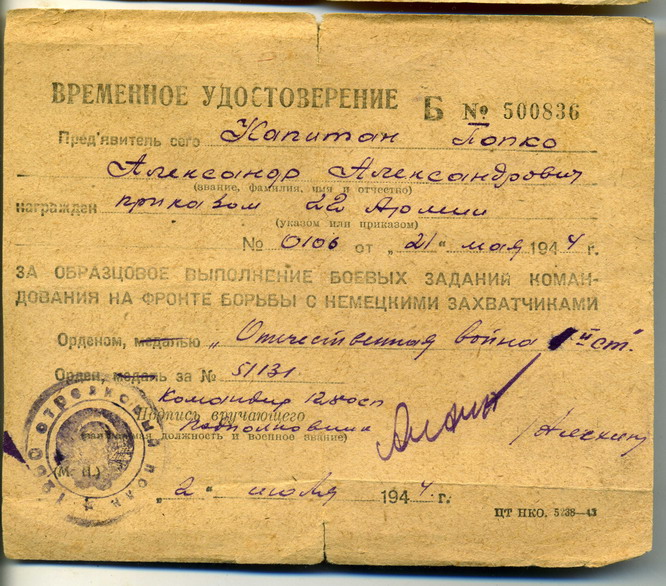 ВРЕМЕННОЕ УДОСТОВЕРЕНИЕ Б № 500836
Пред'явитель сего Капитан Попко
Александр Александрович
(звание, фамилия, имя и отчество)
награжден приказом 22 Армии
(указом или приказом)
№ 0106 от „21" мая 1944 г.
ЗА ОБРАЗЦОВОЕ ВЫПОЛНЕНИЕ БОЕВЫХ ЗАДАНИЙ КОМАН-
ДОВАНИЯ НА ФРОНТЕ БОРЬБЫ С НЕМЕЦКИМИ ЗАХВАТЧИКАМИ
Орденом, медалью „Отечественная война II ст."
Орден, медаль за № 51131
Командир
Подпись вручающего
Подполковник
должность и военное звание)
(М. П.)
„2" июля 1944 г.
ЦТ НКО. 5238—43
стрелковый полк